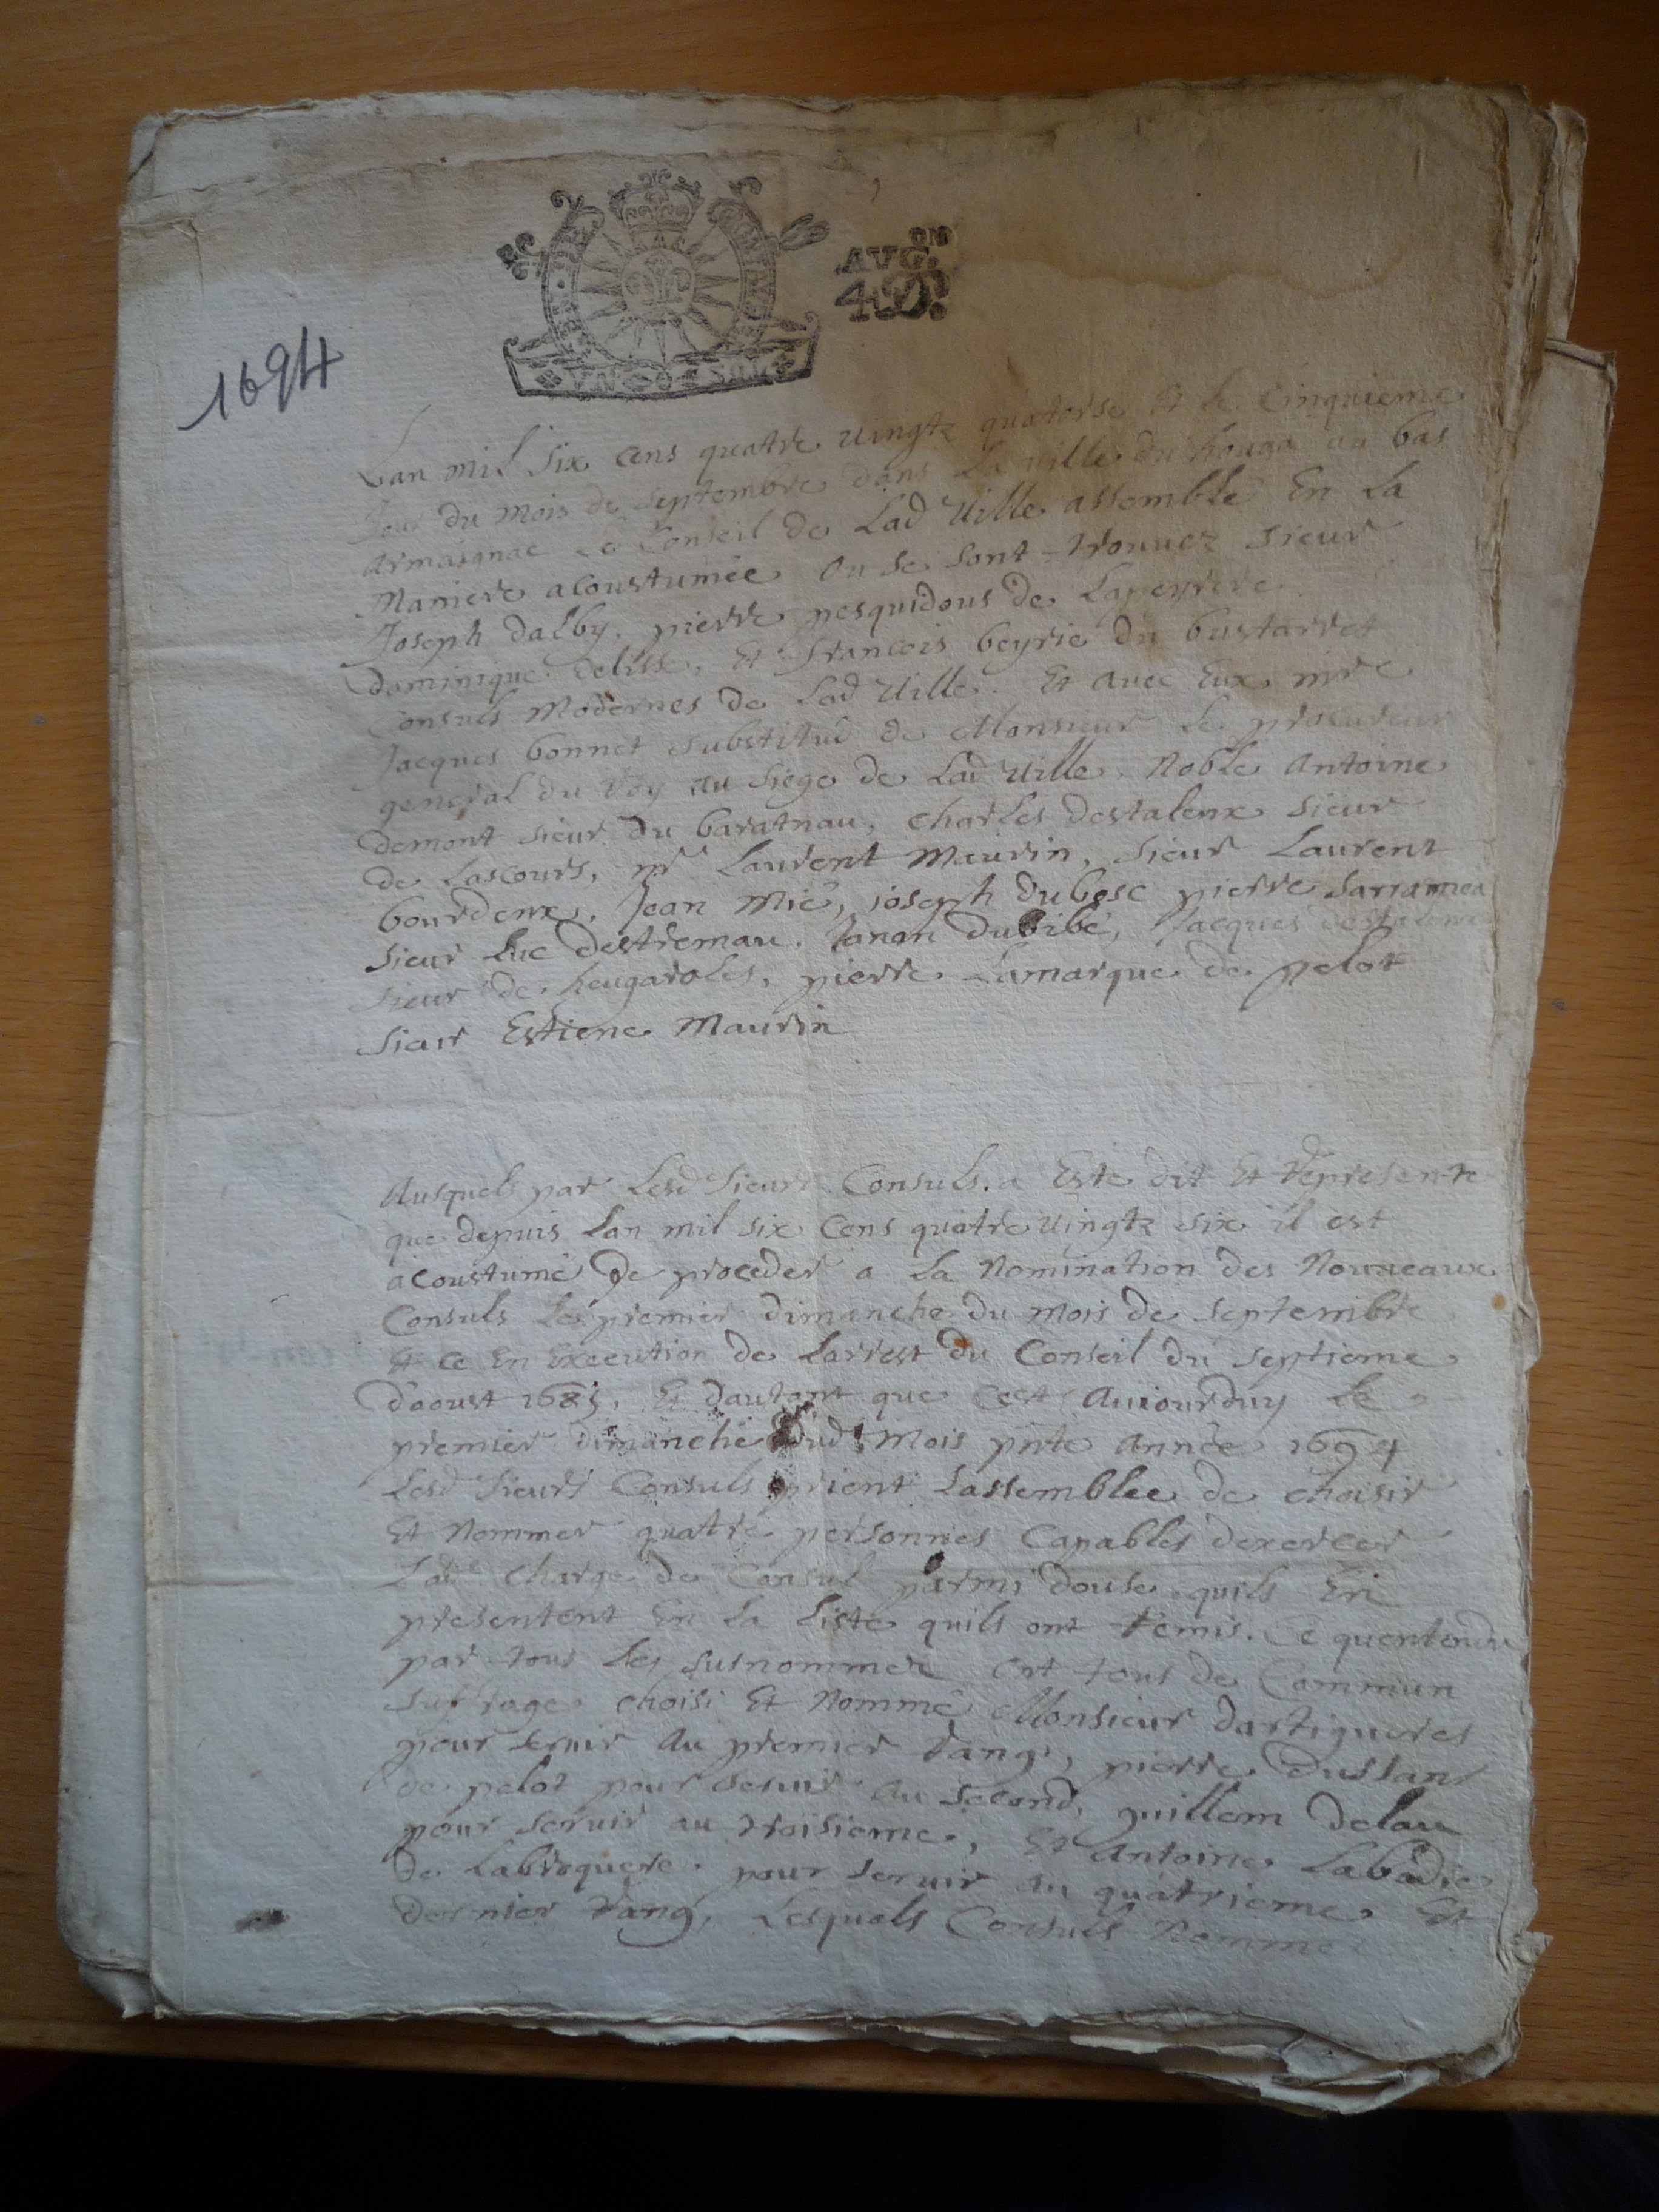 AVG.ON
4.D.
VN SOL
1694
Lan mil six cens quatre vingtz quatorse et le cinquieme
Jour du mois de septembre dans la ville du houga au bas
armaignac le Conseil de Lad ville assemblé En la
maniere acoustumée ou se sont trouvez sieur
Joseph dalby, pierre pesquidous de Lapeyrere
dominique delisse, et francois beyrie du bustarret
Consuls modernes de Lad ville. Et avec Eux mre
Jacques bonnet substitud de Monsieur le procureur
general du Roy au siege de Lad ville, Noble antoine
demont sieur du baratnau, charles destalenx sieur
de Lascours, mr Laurent maurin, sieur Laurent
bourdenx, Jean mié, ioseph dubosc pierre
sieur luc destremau, Janon dubibé, Jacques destalenx
sieur de heugaroles, pierre Lamarque de pelot
sieur Estiene maurin
Ausquels par Lesd sieurs Consuls a Esté dit Et représenté
que depuis Lan mil six cens quatre vingtz six il est
acoustumé de proceder a La Nomination des Nouveaux
Consuls les premier dimanche du mois de septembre
Et ce En Execution de Larrest du Conseil du septieme
daoust 1685, Et dautant que cest Auiourduy le
premier dimanche dud mois pnte année 1694
Lesd sieurs Consuls prient Lassemblee de choisir
Et Nommer quatre personnes Capables dexercer
Lad charge de Consul parmi douse quils En
presentent En La Liste quils ont remis. Ce quentendu
par tous les susnommez ont tous de Commun
suffrage choisi Et Nommé Monsieur dartigueres
pour servir Au premier rang, pierre dussans
de pelot pour servir Au second, guillem delau
pour servir au troisieme, Et Antoine Labadie
de Labroquere pour servir au quatrieme Et
dernier rang, Lesquels Consuls Nommez